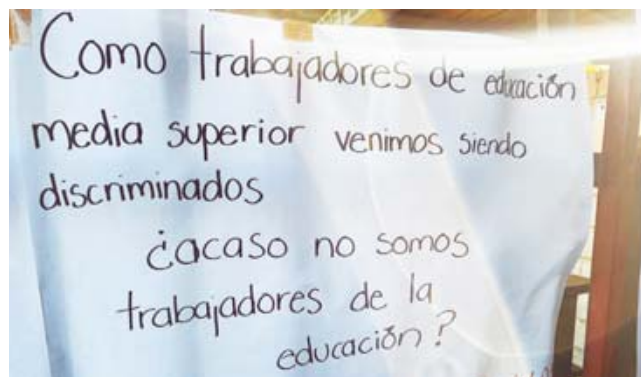 Como trabajadores de educación
media superior venimos siendo
discriminados
¿acaso no somos
trabajadores de la
educación?